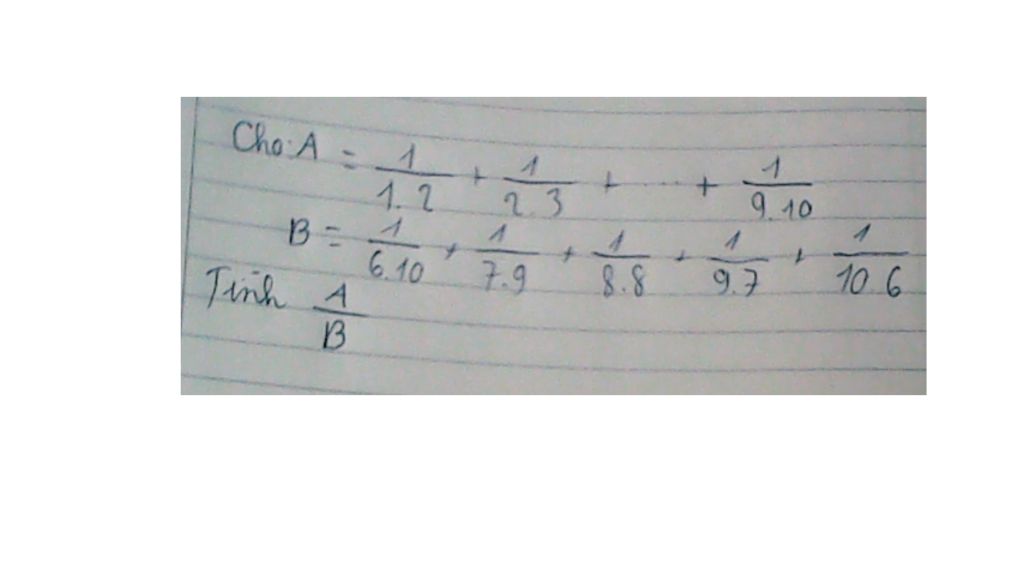 Cho: A = 1/1.2 + 1/2.3 + ... + 1/9.10
B = 1/6.10 + 1/7.9 + 1/8.8 + 1/9.7 + 1/10.6
Tính A/B